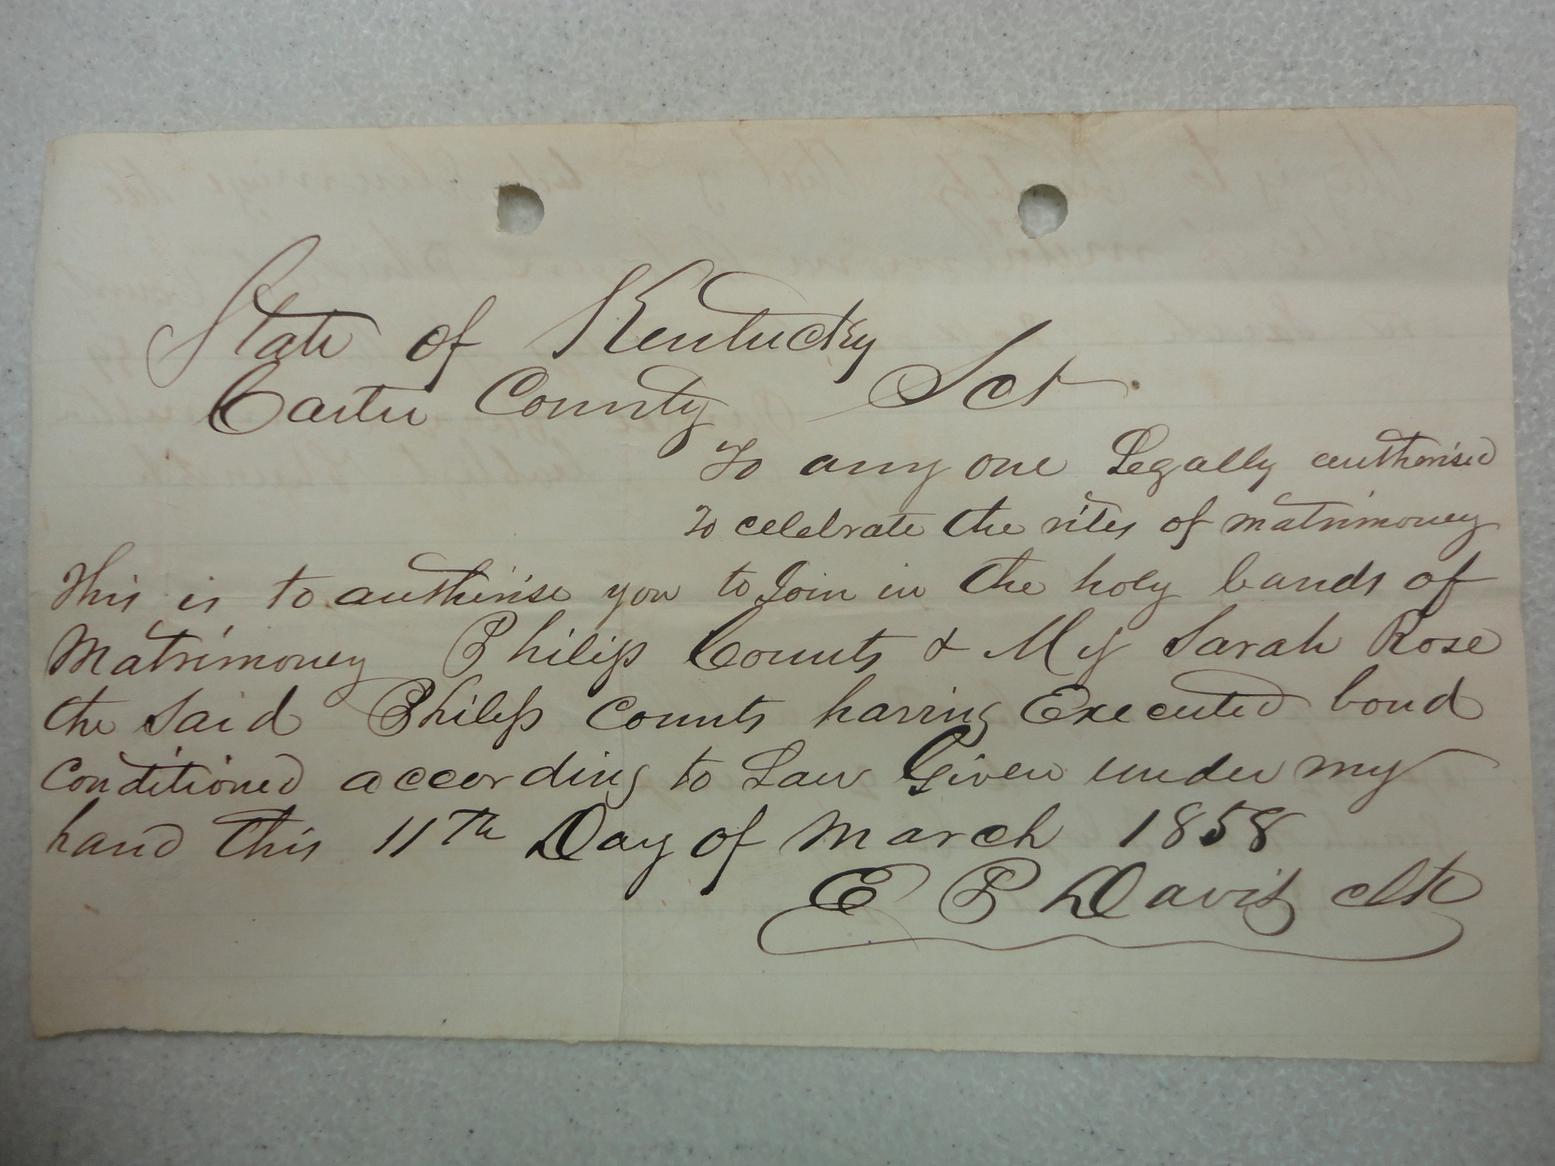 State of Kentucky
Carter County Sct
To any one Legally authorised
To celebrate the rites of matrimoney
This is to authorise you to Join in the holy bands of
Matrimoney Philip Counts & Ms Sarah Rose
the Said Philip Counts having Executed bond
Conditioned according to Law Given under my
hand this 11th Day of March 1858
E P Davis Clk